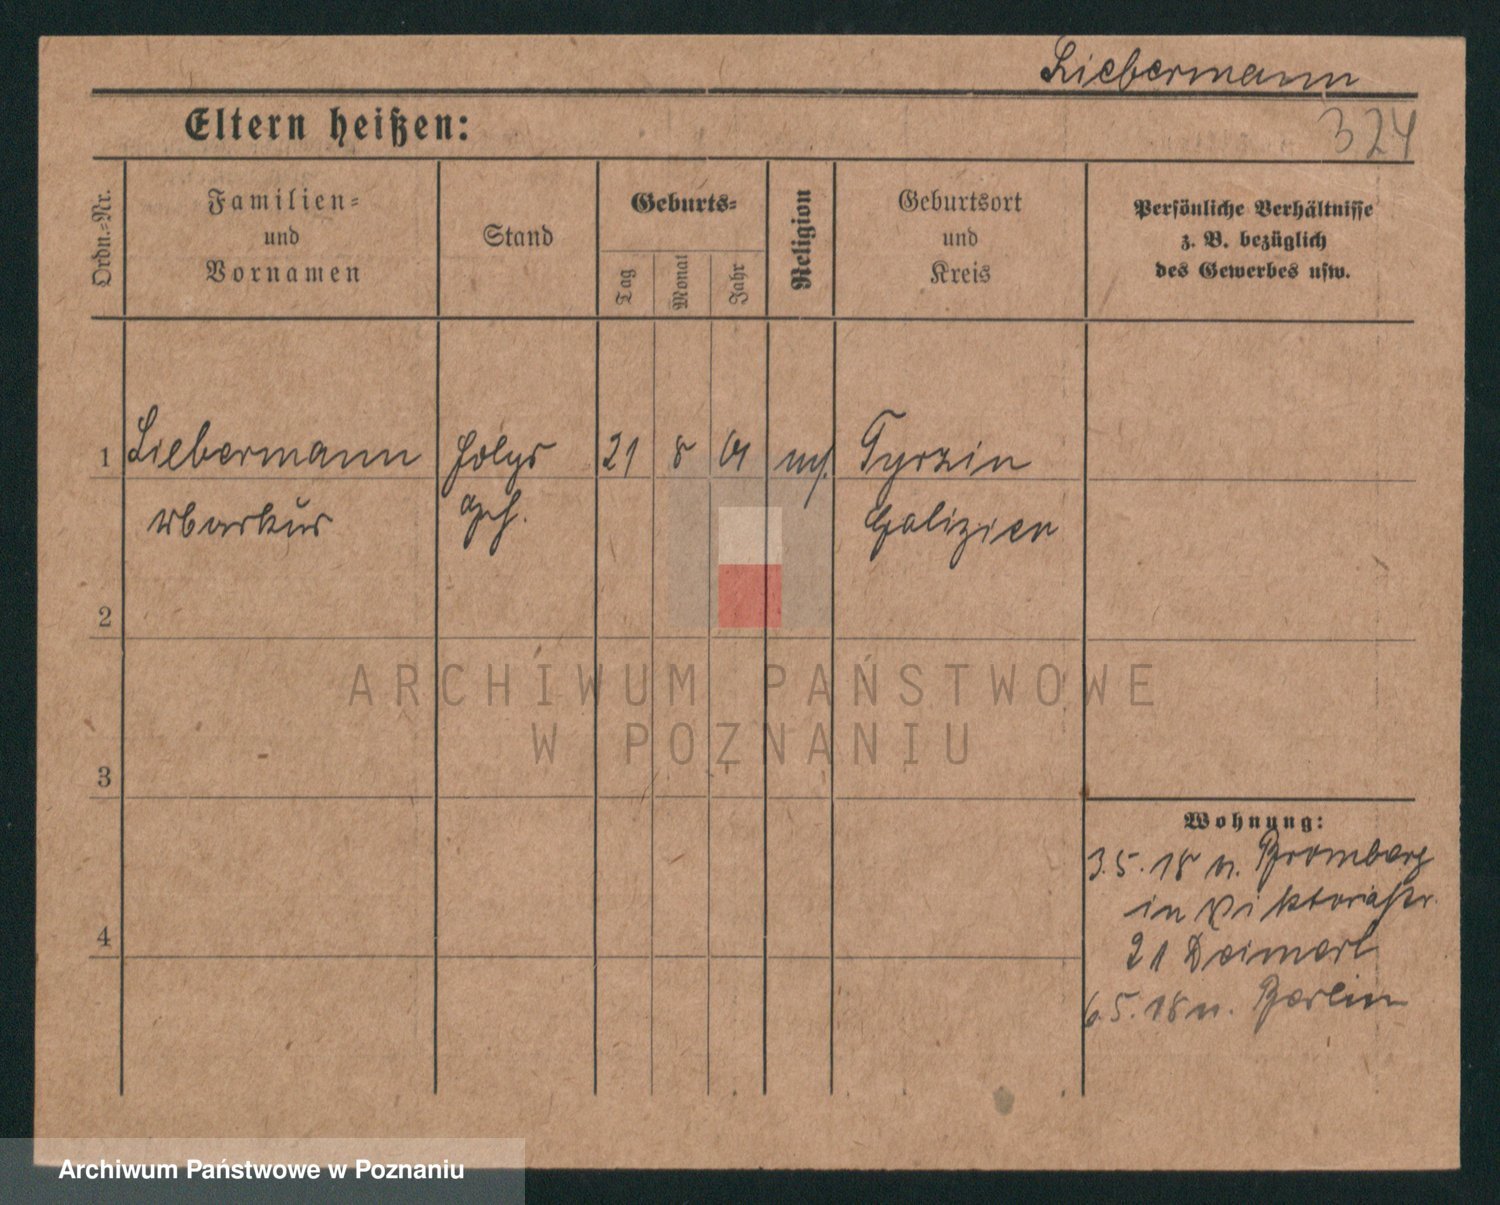 Liebermann
324
Eltern heißen:
Ordn.-Nr.
Familien-
und
Vornamen
Stand
Geburts-
Tag
Monat
Jahr
Religion
Geburtsort
und
Kreis
Persönliche Verhältnisse
z. B. bezüglich
des Gewerbes usw.
1 Liebermann 21 8 01 Tyrzin
Markus Galizien
2
3
4
Wohnung:
3.5.18 n. Bromberg
in Viktoriastr.
21
6.5.18 n. Berlin
ARCHIWUM PAŃSTWOWE
W POZNANIU
Archiwum Państwowe w Poznaniu